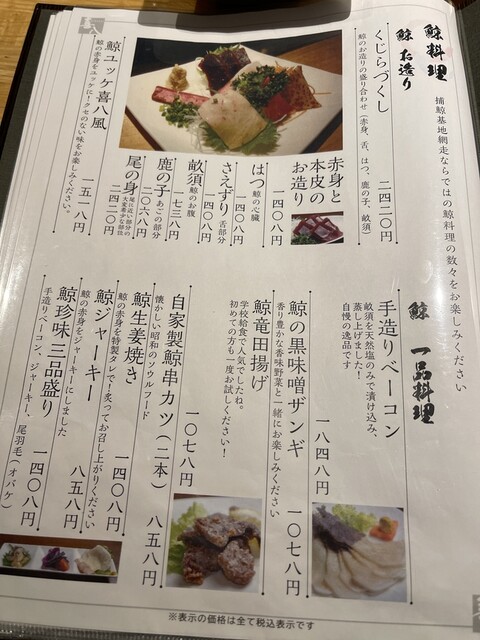 鯨料理
捕鯨基地網走ならではの鯨料理の数々をお楽しみください
鯨 お造り
くじらづくし
鯨のお造りの盛り合わせ(赤身、舌、はつ、鹿の子、畝須)
二四二〇円
赤身と
本皮の
お造り
一四〇八円
はつ 鯨の心臓
一四〇八円
さえずり 舌部分
一四〇八円
畝須 鯨のお腹
一七三八円
鹿の子 あごの部分
二〇六八円
尾の身 尾に近い部分の
大変希少な部位
二四二〇円
鯨ユッケ喜八風
鯨の赤身をユッケに!クセのない味をお楽しみください。
一五一八円
鯨 一品料理
手造りベーコン
畝須を天然塩のみで漬け込み、
蒸し上げました!
自慢の逸品です
一八四八円
鯨の黒味噌ザンギ
香り豊かな香味野菜と一緒にお楽しみください
一〇七八円
鯨竜田揚げ
学校給食で人気でしたね。
初めての方も一度お試しください!
一〇七八円
自家製鯨串カツ(二本)
懐かしい昭和のソウルフード
八五八円
鯨生姜焼き
鯨の赤身を特製タレで!炙ってお召し上がりください
一四〇八円
鯨ジャーキー
鯨の赤身をジャーキーにしました
八五八円
鯨珍味 三品盛り
手造りベーコン、ジャーキー、尾羽毛(オバケ)
一四〇八円
※表示の価格は全て税込表示です